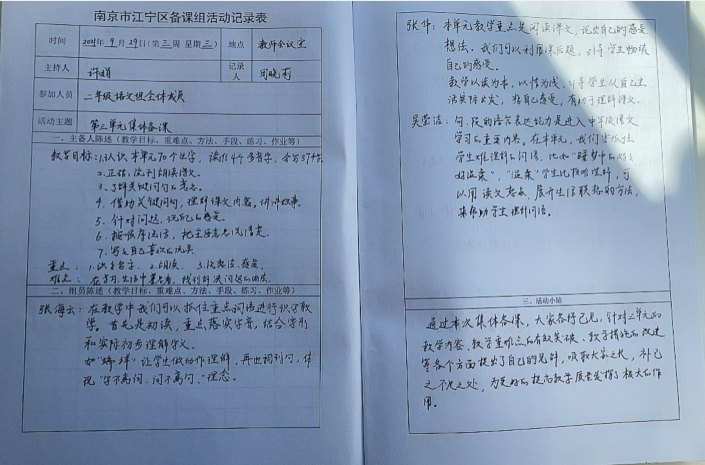 南京市江宁区备课组活动记录表
时间 2021年9月29日(第三周 星期三) 地点 教师会议室
主持人 许娟 记录人 周晓莉
参加人员 二年级语文组全体成员
活动主题 第三单元集体备课
一、主备人陈述(教学目标、重难点、方法、手段、练习、作业等)
教学目标:1.认识本单元70个生字,读准4个多音字,会写37个字
2.正确、流利朗读课文。
3.了解关键词句的意思。
4.借助关键词句,理解课文内容。讲讲故事。
5.针对问题,说说自己的感受。
6.按顺序说话,把主要意思说清楚。
7.写写自己喜欢的玩具
重点:1.识字写字。2.朗读。3.说想法、感受。
二、组员陈述(教学目标、重难点、方法、手段、练习、作业等)
张海云:在教学中我们可以抓住重点词语进行识字教
学,首先是初读,重点落实字音,结合字形
和实际初步理解字义。
让学生做动作理解,再出词到句,体
现"字不离词,词不离句"理念。
张华:本单元教学重点是阅读课文,说出自己的感受、
想法。我们可以利用课后题,引导学生畅谈
自己的感受。
教学以读为本,以情为线,引导学生从自己生
活实际出发,谈自己感受,有助于理解课文。
吴莹洁:句、段的语言表达能力是进入中年级语文
学习的重要内容。在本单元,我们要抓住
学生难理解的词语,比如
"温柔"学生比较难理解,可
以用读文思考、展开生活联想的方法,
来帮助学生理解词语。
三、活动小结
通过本次集体备课,大家各抒己见,针对三单元的
教学内容、教学重难点的有效突破、教学措施的改进
等各个方面提出了自己的见解,吸取大家之长,补己
之不足之处,为更好的提高教学质量发挥了极大的作
用。